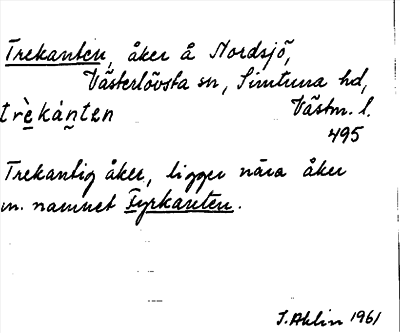 Trekanten, åker å Nordsjö,
Västerlövsta sn, Simtuna hd,
trè̱ká̱ṉten Västm. l.
495
Trekantig åker, ligger nära åker
m. namnet Fyrkanten.
J. Ahlin 1961